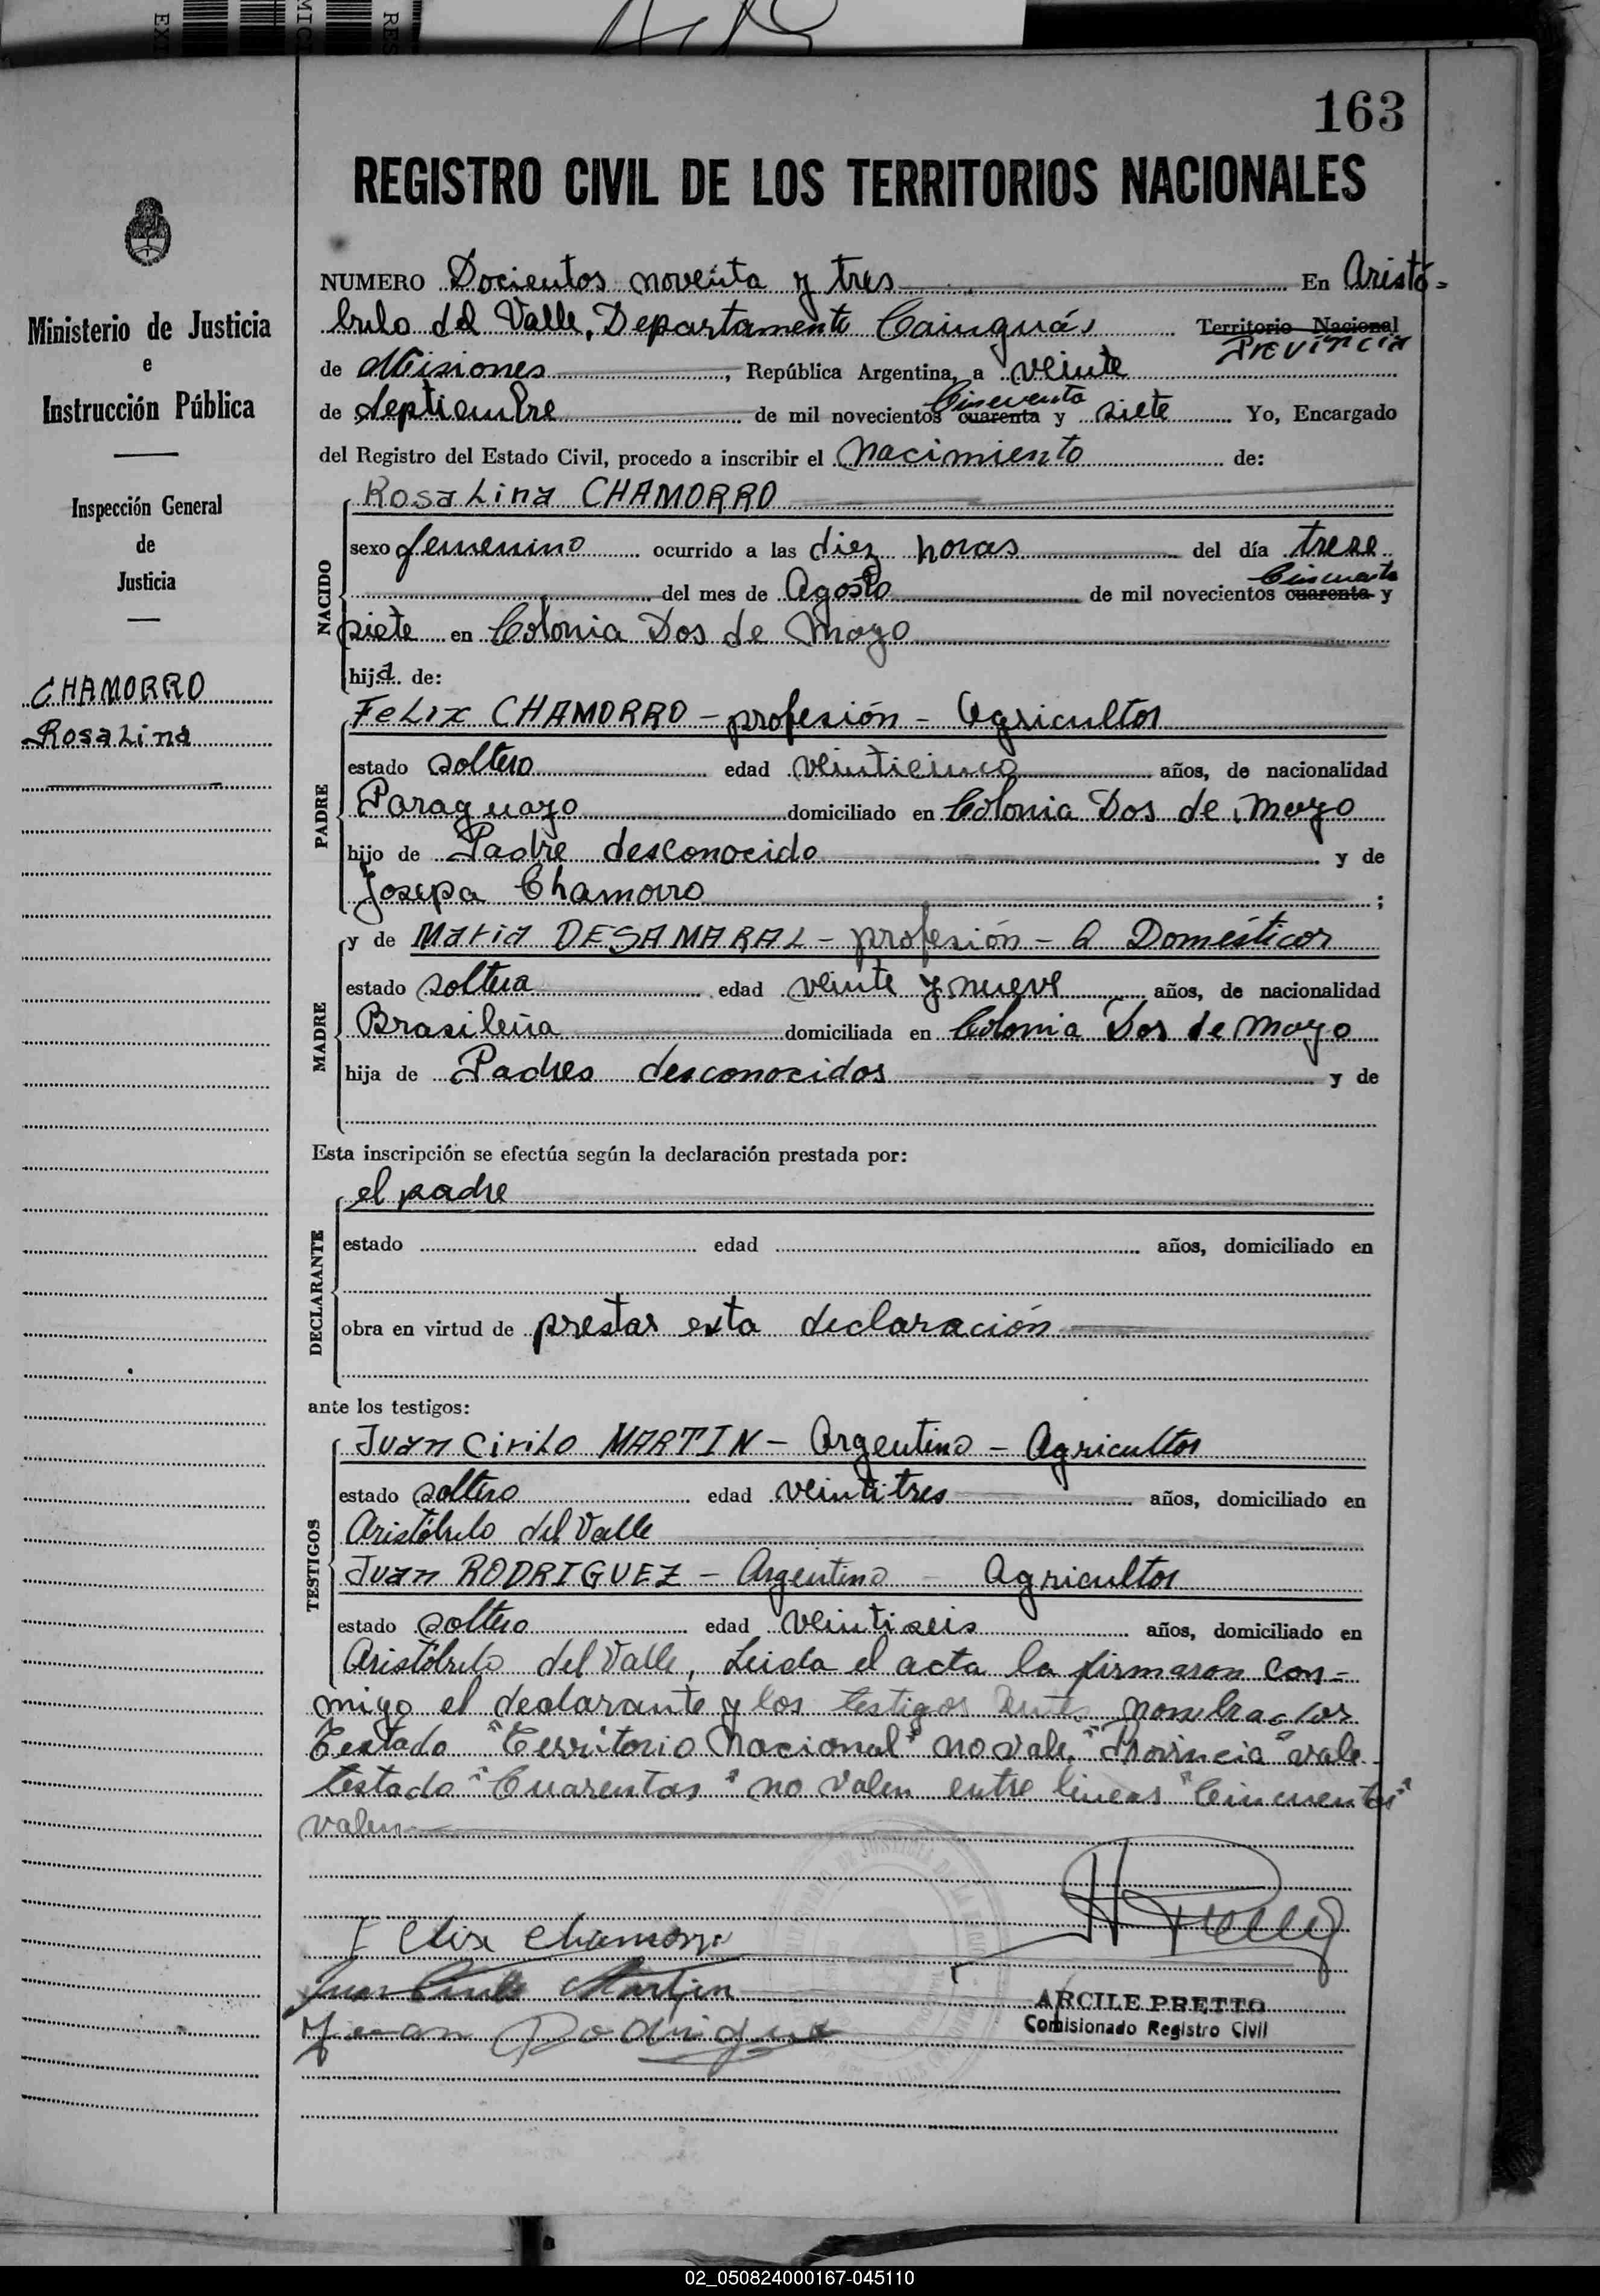 163
REGISTRO CIVIL DE LOS TERRITORIOS NACIONALES
Ministerio de Justicia
e
Instrucción Pública
Inspección General
de
Justicia
CHAMORRO
Rosalina
NUMERO Docientos noventa y tres En Aristó-
bulo del Valle, Departamento Cainguás Territorio Nacional Provincia
de Misiones, República Argentina, a veinte
de Septiembre de mil novecientos cuarenta Cincuenta y siete Yo, Encargado
del Registro del Estado Civil, procedo a inscribir el Nacimiento de:
NACIDO
Rosalina CHAMORRO
sexo femenino ocurrido a las diez horas del día trese
del mes de Agosto de mil novecientos cuarenta Cincuenta y
siete en Colonia Dos de Mayo
hija de:
PADRE
Felix CHAMORRO - profesión - Agricultor
estado soltero edad veinticinco años, de nacionalidad
Paraguayo domiciliado en Colonia Dos de Mayo
hijo de Padre desconocido y de
Josepa Chamorro ;
MADRE
y de Maria DESAMARAL - profesión - Q Domésticos
estado soltera edad veinte y nueve años, de nacionalidad
Brasileña domiciliada en Colonia Dos de Mayo
hija de Padres desconocidos y de
Esta inscripción se efectúa según la declaración prestada por:
DECLARANTE
el padre
estado edad años, domiciliado en
obra en virtud de prestar esta declaración
ante los testigos:
TESTIGOS
Juan Cirilo MARTIN - Argentino - Agricultor
estado soltero edad veintitres años, domiciliado en
Aristóbulo del Valle
Juan RODRIGUEZ - Argentino - Agricultor
estado soltero edad veintiseis años, domiciliado en
Aristóbulo del Valle, Leida el acta la firmaron con-
migo el declarante y los testigos antes nombrados
Testado "Territorio Nacional" no vale. "Provincia" vale
testado "Cuarentas" no valen entre lineas "Cincuentas"
valen
Felix Chamorro
Juan Cirilo Martin
Juan Rodriguez
ARCILE PRETTO
Comisionado Registro Civil
02_050824000167-045110